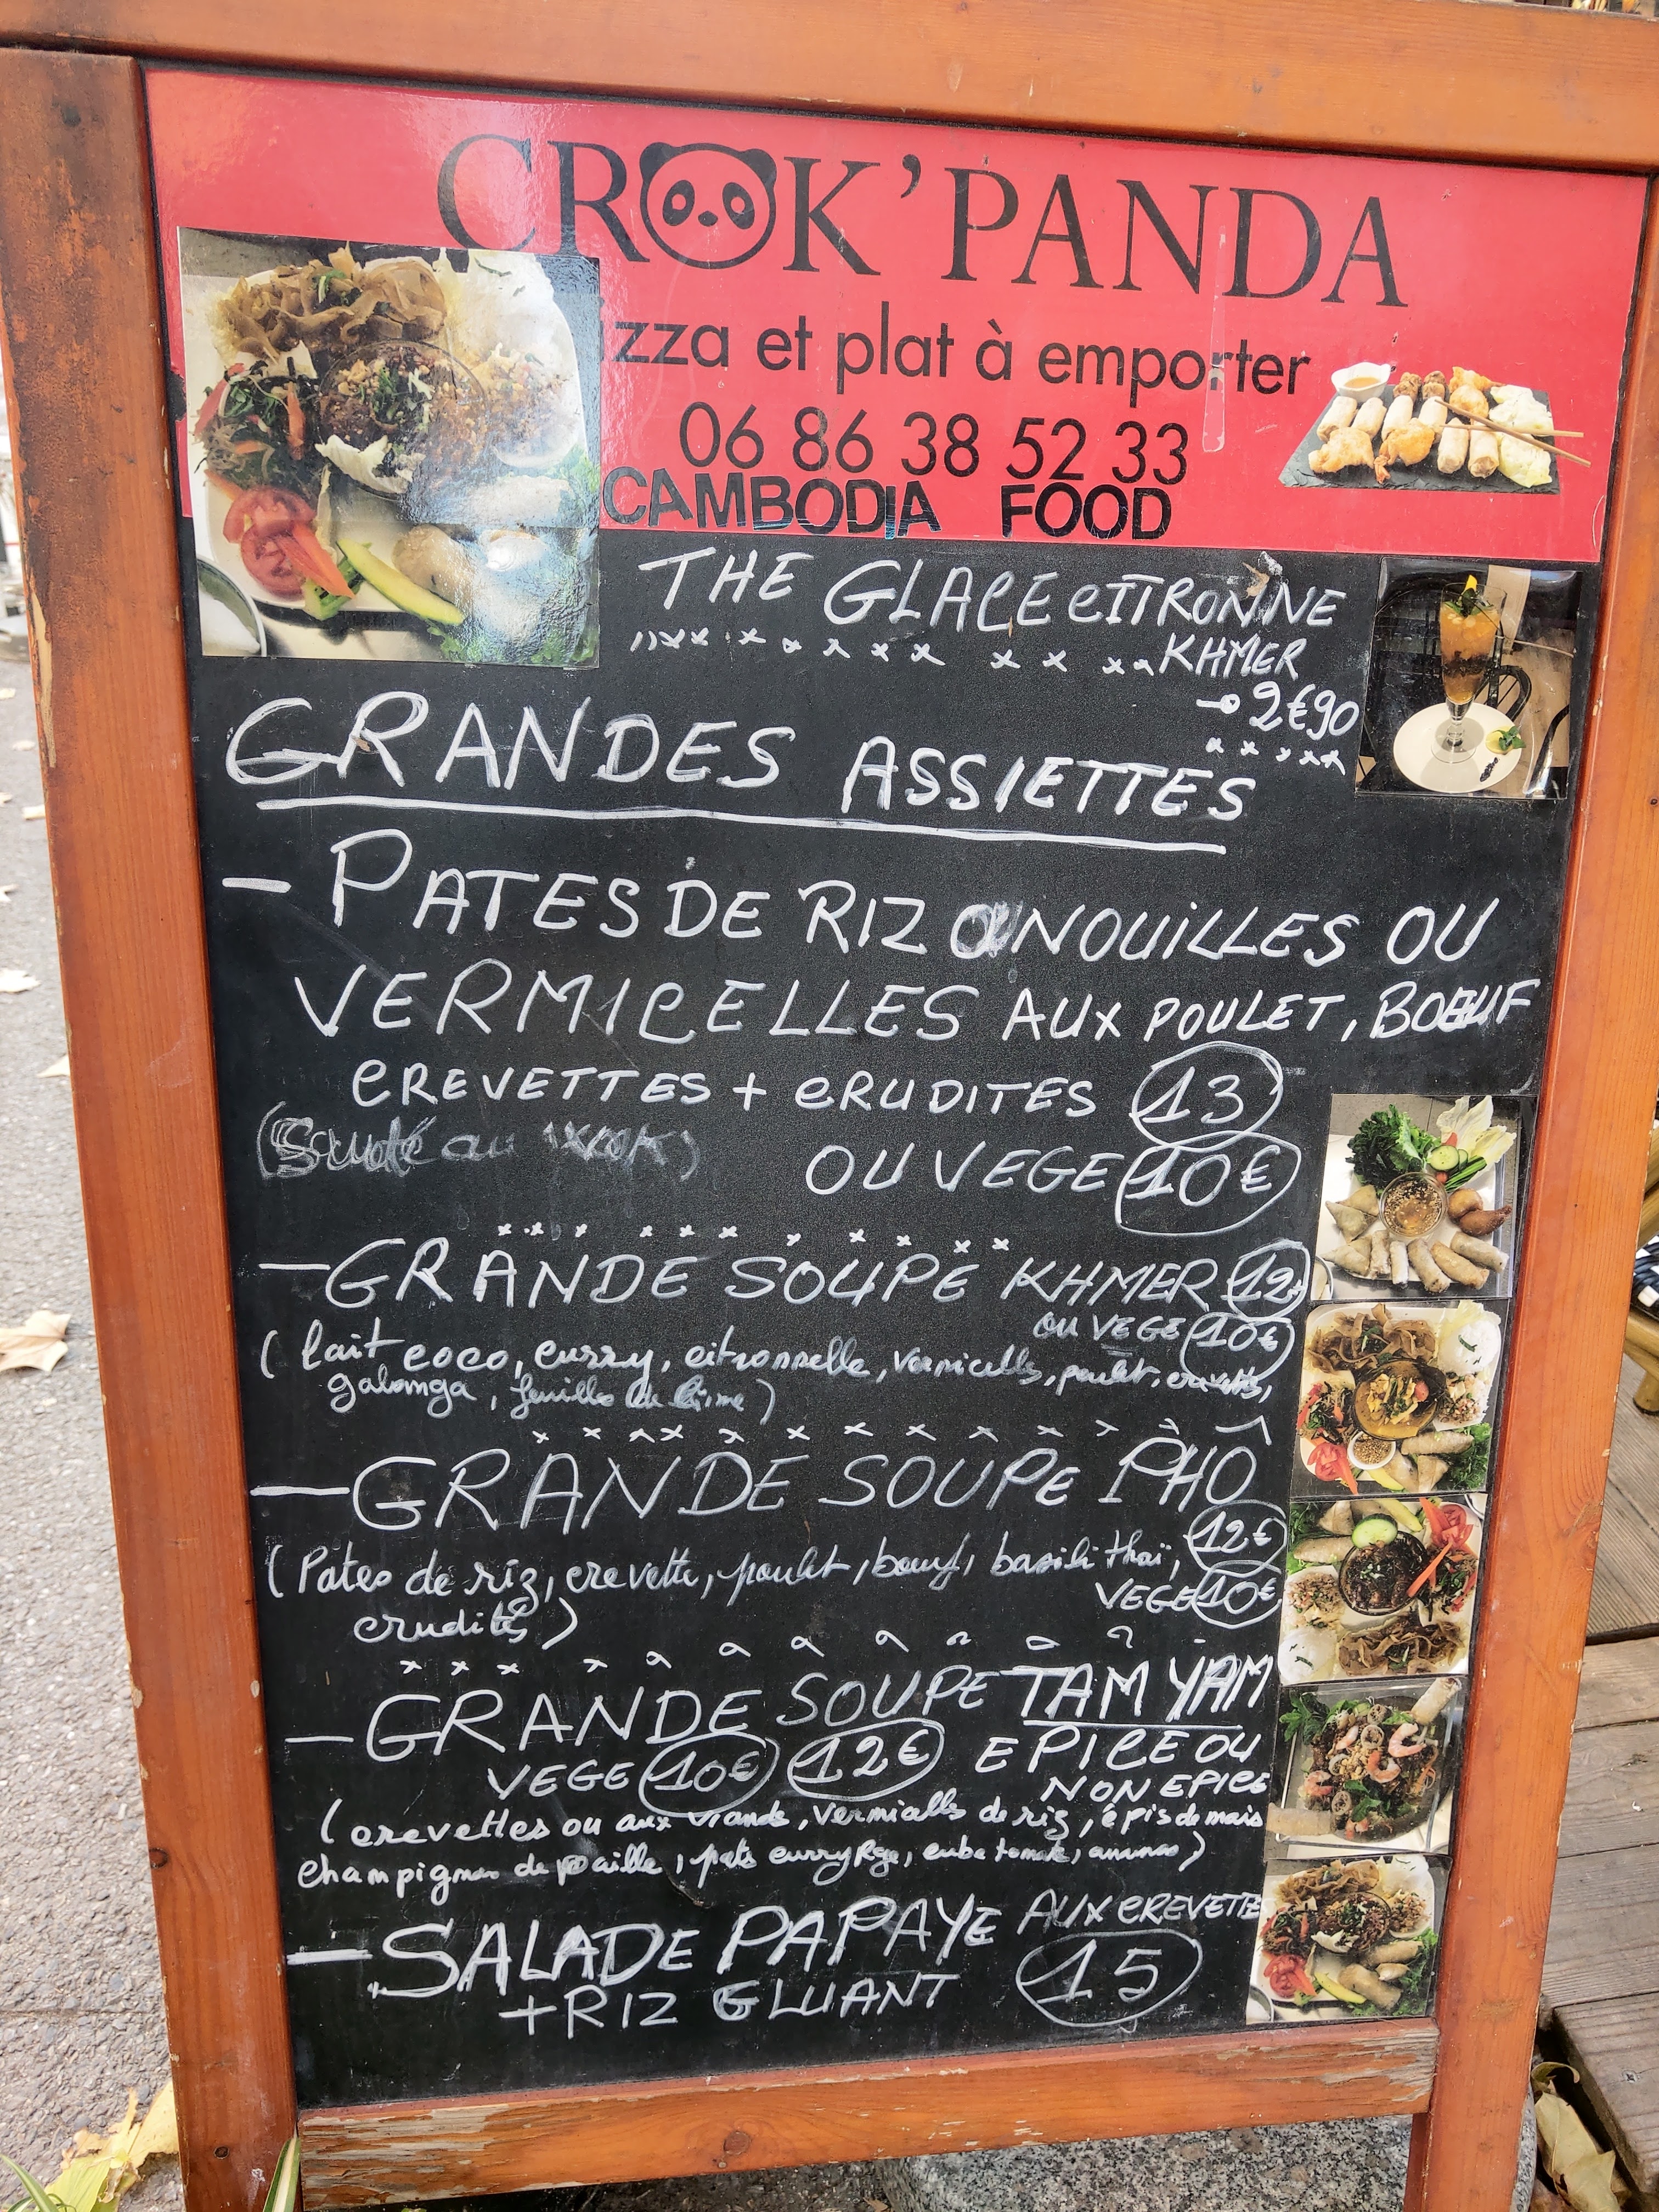 CROK'PANDA
izza et plat à emporter
06 86 38 52 33
CAMBODIA FOOD
THE GLACE CITRONNE
KHMER
2€90
GRANDES ASSIETTES
- PATES DE RIZ NOUILLES OU
VERMICELLES AUX POULET, BOEUF
CREVETTES + CRUDITES 13
(Sauté au wok)
OU VEGE 10€
- GRANDE SOUPE KHMER 12€
OU VEGE 10€
(lait coco, curry, citronnelle, vermicelles, poulet, crevettes,
galanga, feuilles de)
- GRANDE SOUPE PHO
12€
(Pates de riz, crevette, poulet, bœuf, basilic thaï,
VEGE 10€
crudités)
- GRANDE SOUPE TAM YAM
VEGE 10€ 12€ EPICE OU
NON EPICE
(crevettes ou aux viande, vermicelles de riz, épis de mais
champignons de paille, pate curry, cube tomate, ananas)
- SALADE PAPAYE AUX CREVETTE
+ RIZ GLUANT 15